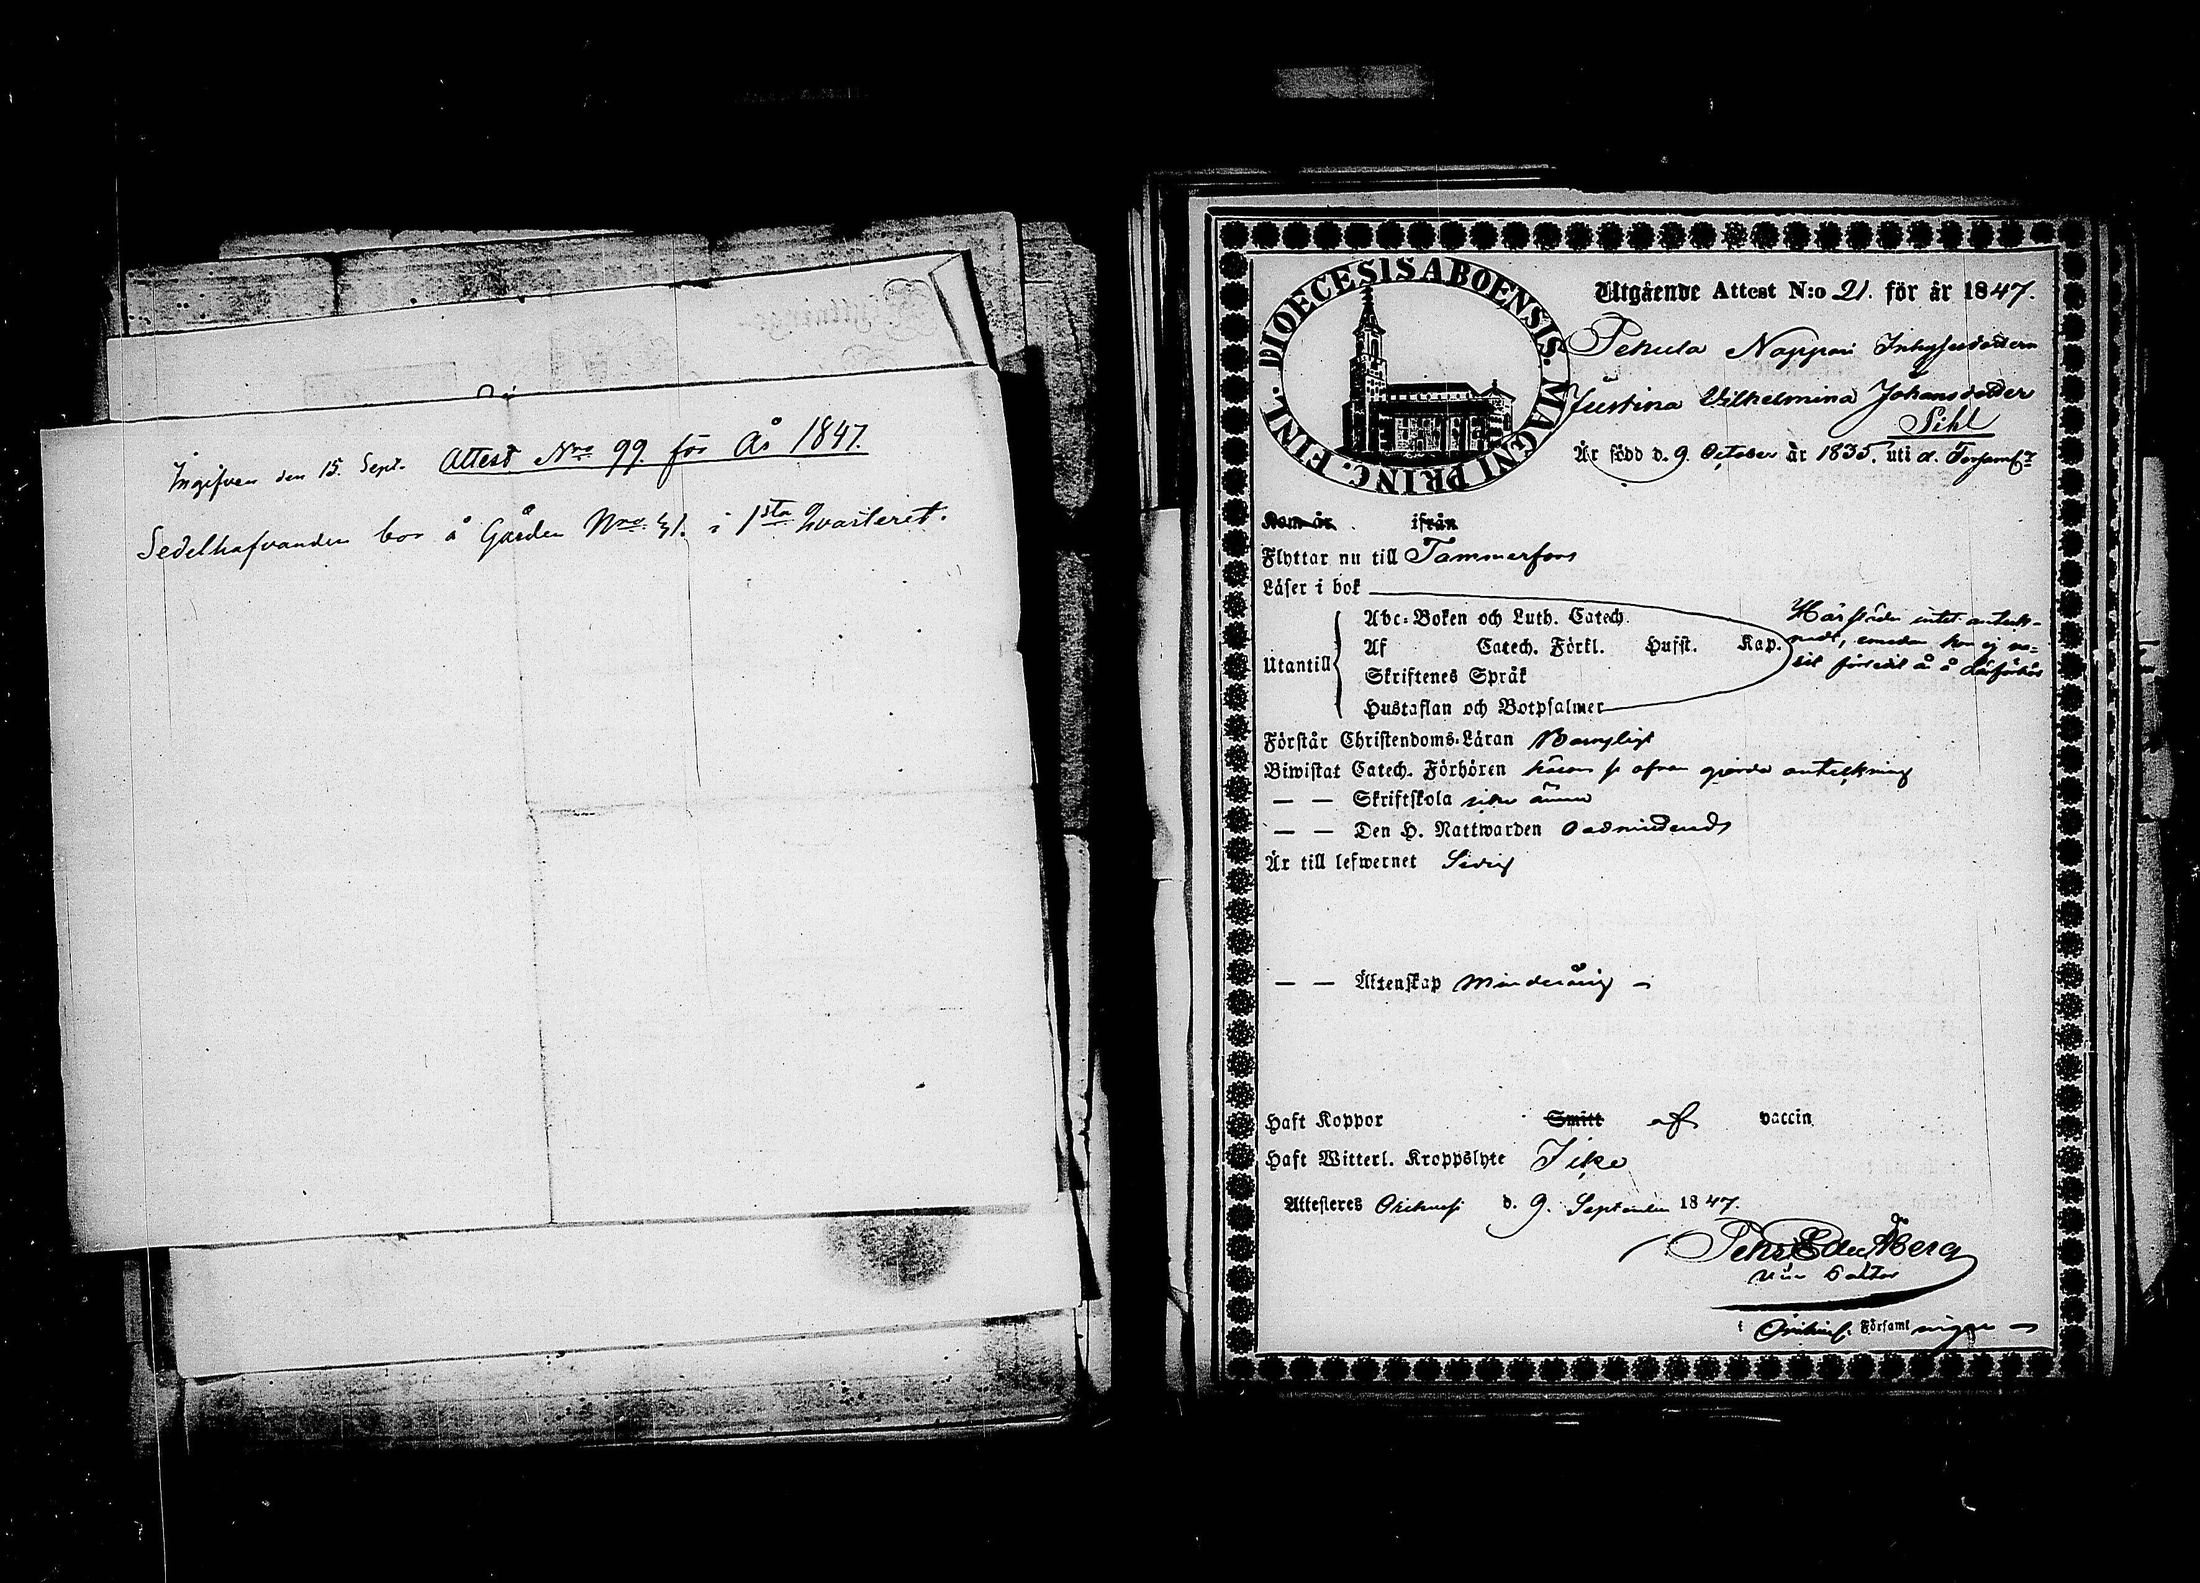 Ingifven den 15. Sept. Attest Nro 99. för År 1847.
Sedelhafvanden bor å Gården Nro 31. i 1sta Qvarteret.
DIOECESIS ABOENSIS. MAGNI PRINC. FINL.
Utgående Attest N:o 21. för år 1847.
Pekula Nappari Inhysesdottern
Justina Vilhelmina Johansdotter
Sihl
Är född d. 9. October år 1835. uti d. Församl:
Kom år ifrån
Flyttar nu till Tammerfors
Läser i bok
Abc-Boken och Luth. Catech.
Utantill Af Catech. Förkl. Husst. Kap.
Skriftenes Språk
Hustaflan och Botpsalmer
Härstädes intet anteck-
nadt, emedan hon ej va-
rit förledit år å Läsförhör
Förstår Christendoms-Läran Barnsligt
Biwistat Catech. Förhören ofvan gjorda anteckning
— — Skriftskola icke ännu
— — Den H. Nattwarden Oadmitterad
Är till lefwernet Sedig
— — Äktenskap Minderårig —
Haft Koppor Smitt af vaccin
Haft Witterl. Kroppslyte Icke
Attesteres d. 9. September 1847.
Pehr Edu Åberg
Vice Pastor
i Församl ningen —